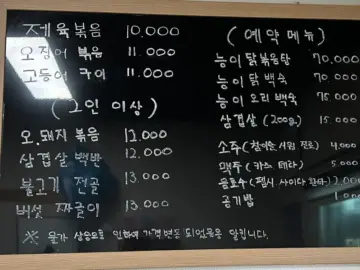 제육볶음 10.000
오징어 볶음 11.000
고등어 구이 11.000
(2인 이상)
오.돼지 볶음 12.000
삼겹살 백반 12.000
불고기 전골 13.000
버섯 짜글이 13.000
(예약메뉴)
능이 닭볶음탕 70.000
능이 닭 백숙 70.000
능이 오리 백숙 75.000
삼겹살 (200g) 15.000
소주 (참이슬 시원 진로) 4.000
맥주 (카스 테라) 5.000
음료수 (펩시 사이다 환타) 2.000
공기밥 1.000
※ 물가 상승으로 인하여 가격변동 되었음을 알립니다.